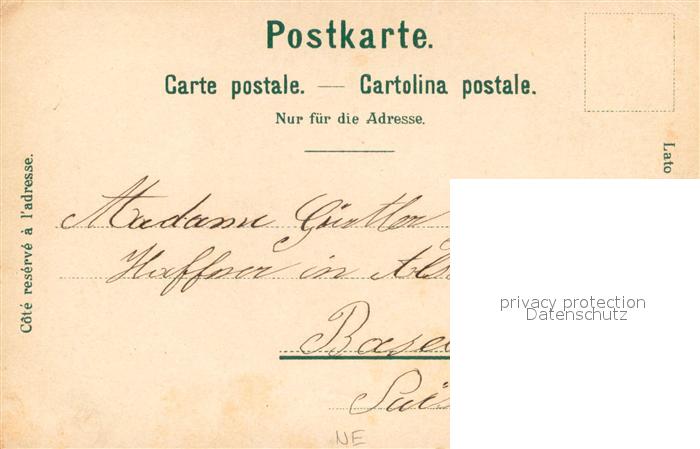 Postkarte.
Carte postale. — Cartolina postale.
Nur für die Adresse.
Côté resérvé à l'adresse.
Lato
Madame Gürtler
Haffner in
privacy protection
Datenschutz
NE